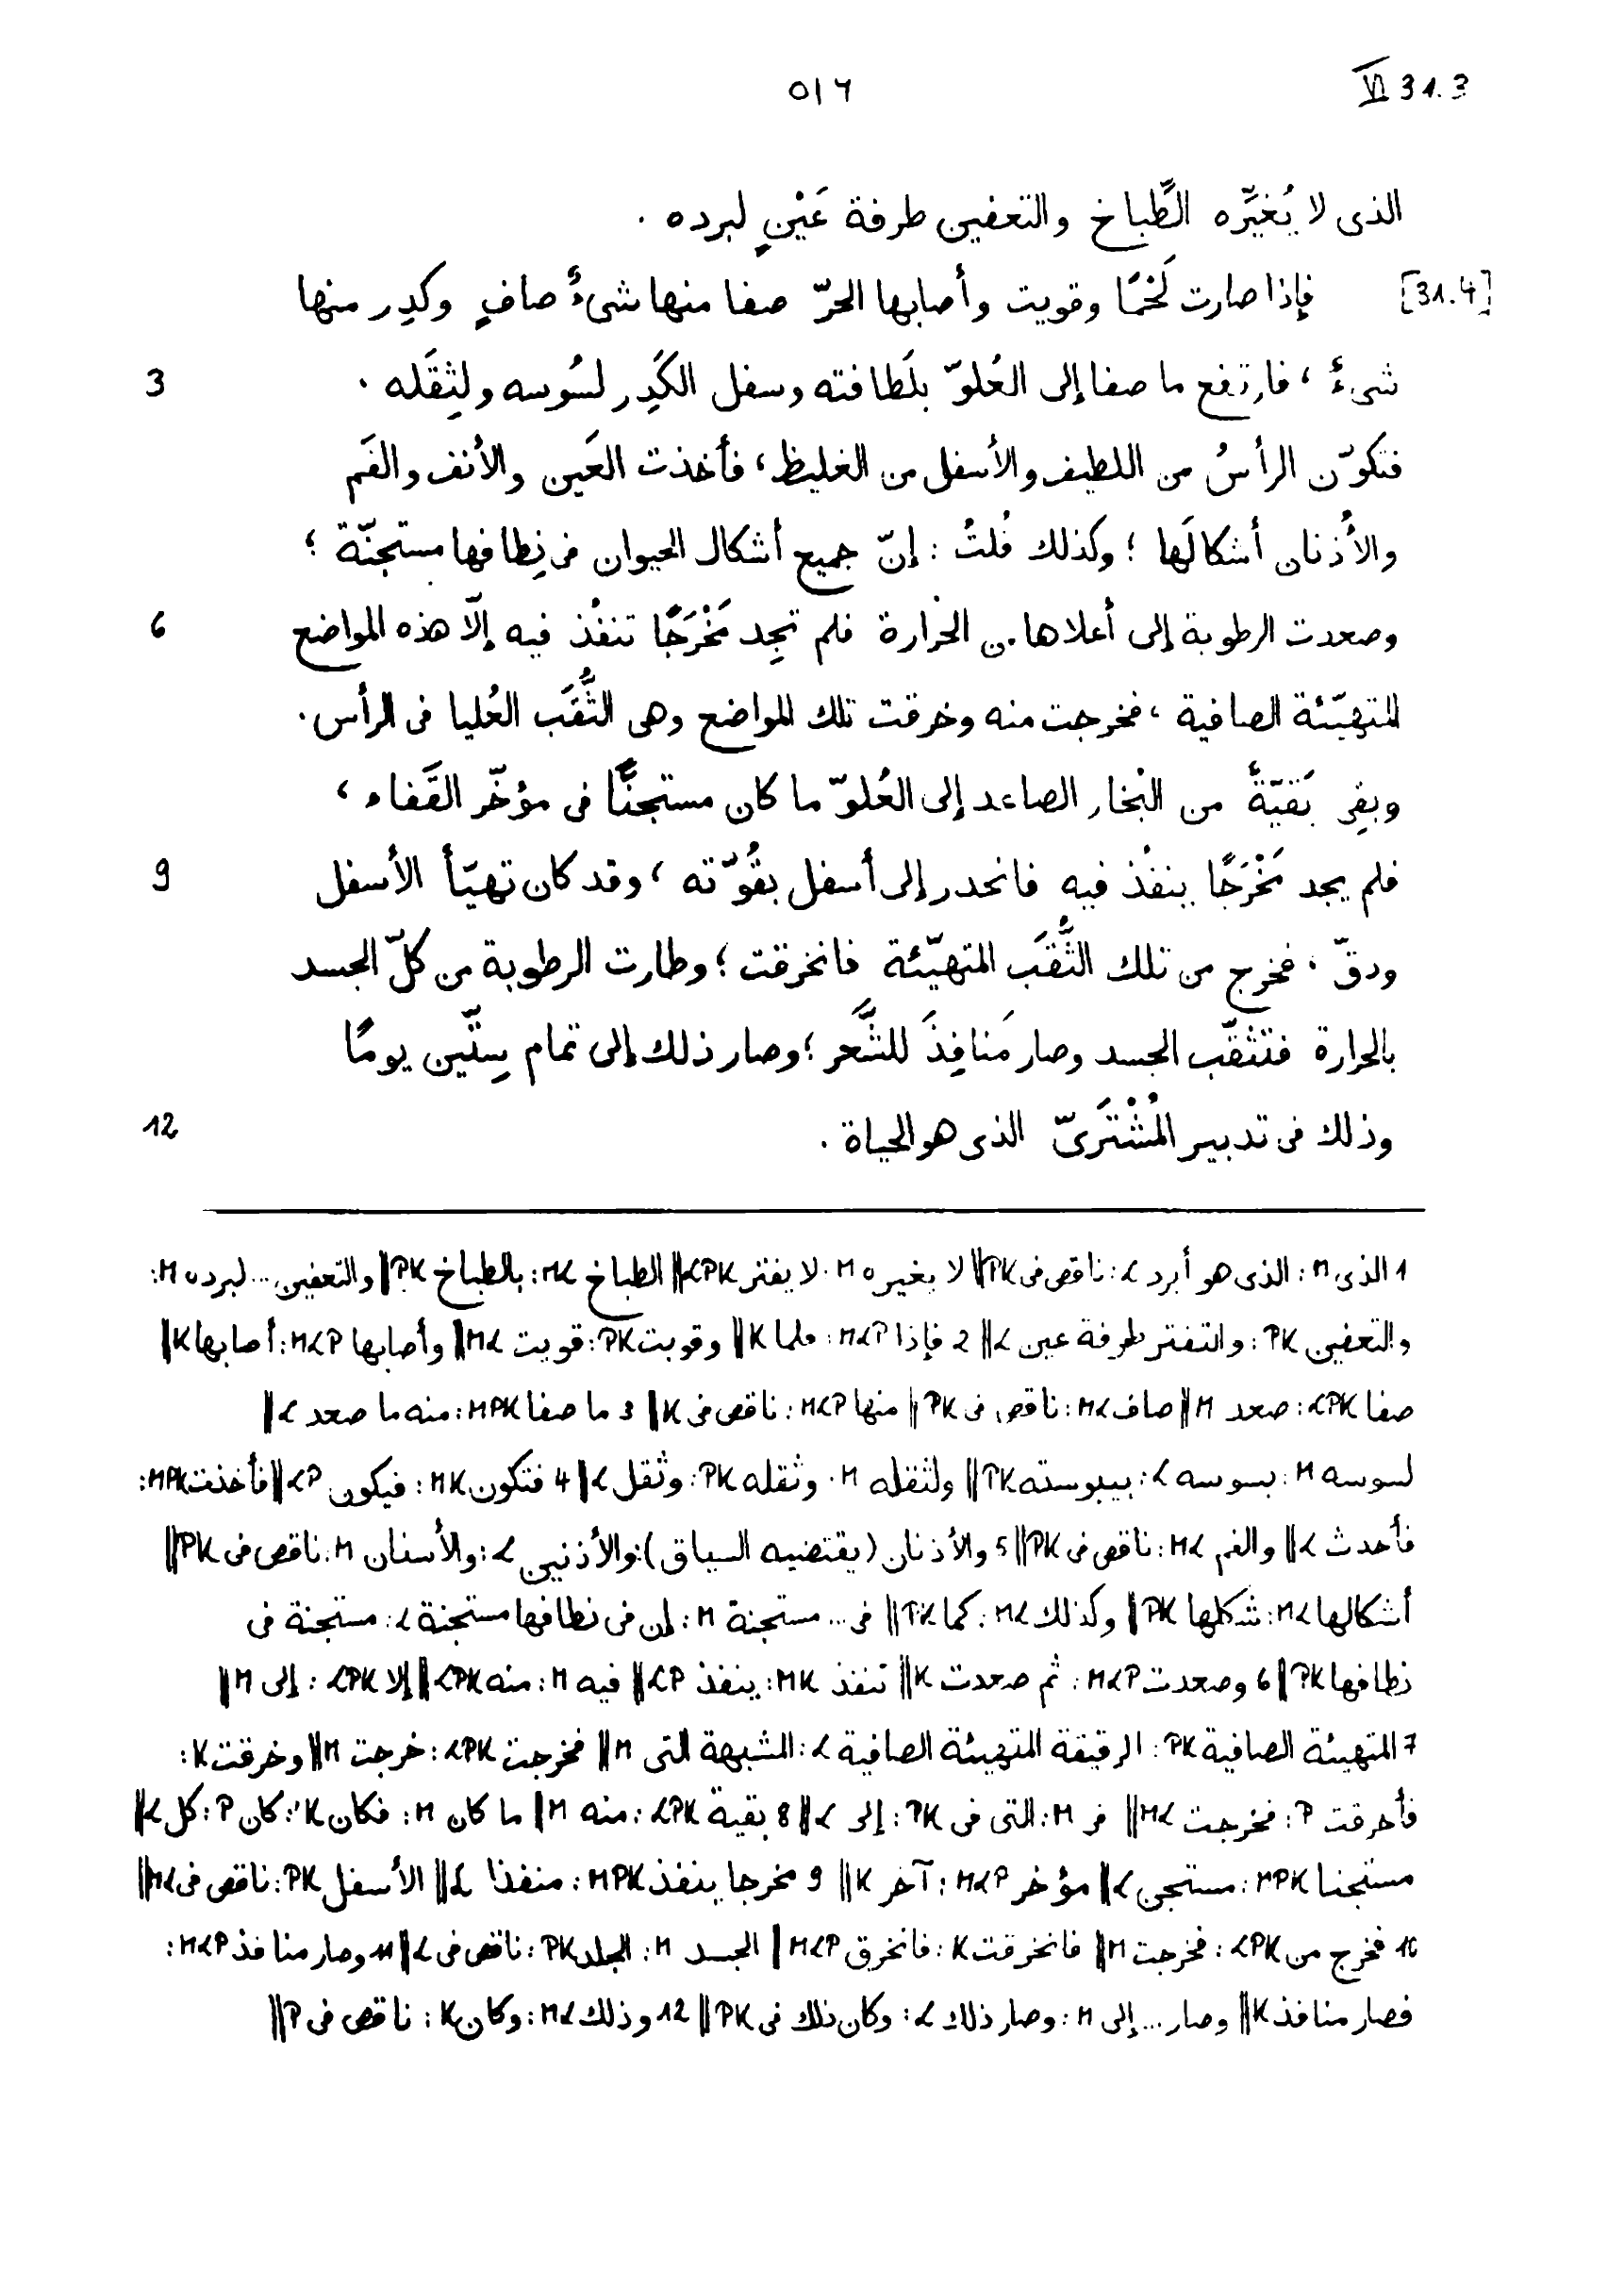 VI 31.3
٥١٦
الذى لا يُغيِّره الطَّباخ والتعفين طرفة عَيْنٍ لبرده .
[31.4] فإذا صارت لَحْمًا وقويت وأصابها الحرّ صفا منها شىءٌ صافٍ وكدِر منها
3 شىءٌ ، فارتفع ما صفا إلى العُلوّ بلَطافته وسفل الكَدِر لسُوسه ولثِقَله .
فتكوّن الرأسُ من اللطيف والأسفل من الغليظ ، فأخذت العَين والأنف والفَم
والأُذنان أشكالَها ؛ وكذلك قُلتُ : إنّ جميع أشكال الحيوان فى نِطافها مستجنّة ؛
6 وصعدت الرطوبة إلى أعلاها من الحَرارة فلم تجِد مَخْرَجًا تنفُذ فيه إلّا هذه المواضع
المتهيّئة الصافية ، فخرجت منه وخرقت تلك المواضع وهى الثُّقَب العُليا فى الرأس .
وبقِى بَقيّةٌ من البُخار الصاعد إلى العُلوّ ما كان مستجنًّا فى مؤخّر القَفاء ،
9 فلم يجد مَخْرَجًا ينفُذ فيه فانحدر إلى أسفل بقُوّته ، وقد كان تهيّأ الأسفل
ودقّ ، فخرج من تلك الثُّقَب المتهيّئة فانخرقت ؛ وطارت الرطوبة من كلّ الجسد
بالحرارة فتثقّب الجسد وصار مَنافِذَ للشَّعر ؛ وصار ذلك إلى تمام سِتّين يومًا
12 وذلك فى تدبير المُشْتَرَىّ الذى هو الحياة .
1 الذى M : الذى هو أبرد L : ناقص فى PK || لا يغيره M : لا يفتر LPK || الطباخ ML : بالطباخ PK || والتعفين ... لبرده M :
والتعفين PK : والتفتر طرفة عين L || 2 فإذا MLP : فلما K || وقويت PK : قويت ML || وأصابها MLP : أصابها K ||
صفا LPK : صعد M || صاف ML : ناقص فى PK || منها MLP : ناقص فى K || 3 ما صفا MPK : منه ما صعد L ||
لسوسه M : بسوسه L : بيبوسته PK || ولثقله M : وثقله PK : وثقل L || 4 فتكون MK : فيكون LP || فأخذت MPK :
فأحدث L || والفم ML : ناقص فى PK || 5 والأذنان (يقتضيه السياق) : والأذنين L : والأسنان M : ناقص فى PK ||
أشكالها ML : شكلها PK || وكذلك ML : كما PK || فى ... مستجنة M : إن فى نطافها مستجنة L : مستجنة فى
نطافها PK || 6 وصعدت MLP : ثم صعدت K || تنفذ MK : ينفذ LP || فيه M : منه LPK || إلا LPK : إلى M ||
7 المتهيئة الصافية PK : الرقيقة المتهيئة الصافية L : المشبهة التى M || فخرجت LPK : خرجت M || وخرقت K :
فأحرقت P : فخرجت ML || فى M : التى فى PK : إلى L || 8 بقية LPK : منه M || ما كان M : فكان K : كان P : كل L ||
مستجنا MPK : مستجن L || مؤخر MLP : آخر K || 9 مخرجا ينفذ MPK : منفذا L || الأسفل PK : ناقص فى ML ||
10 فخرج من LPK : فخرجت M || فانخرقت K : فانخرق MLP || الجسد M : الجلد PK : ناقص فى L || 11 وصار منافذ MLP :
فصار منافذ K || وصار ... إلى M : وصار ذلك L : وكان ذلك فى PK || 12 وذلك ML : وكان K : ناقص فى P ||